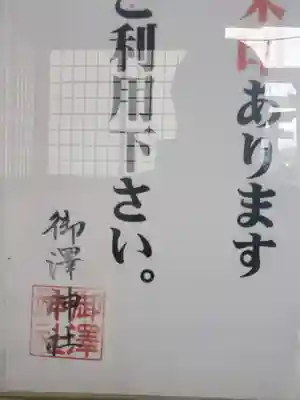 朱印あります
ご利用下さい。
御澤
神社
御澤
神社